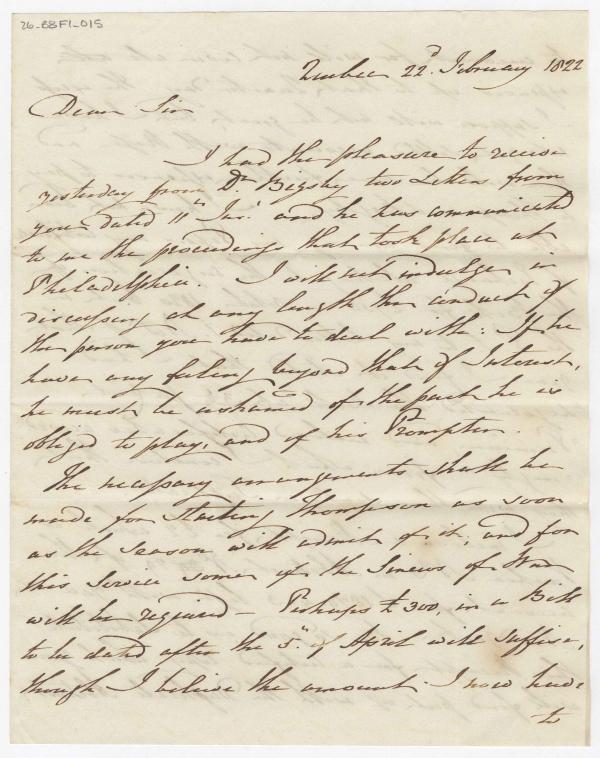 26-B8F1-015
Quebec 22d. February 1822
Dear Sir
I had the pleasure to receive
yesterday from Dr Bigsby two Letters from
you dated 11th Jan.y and he has communicated
to me the proceedings that took place at
Philadelphia. I will not indulge in
discussing at any length the conduct of
the person you have to deal with: If he
have any feeling beyond that of Interest,
he must be ashamed of the part he is
obliged to play, and of his Prompter.
The necessary arrangements shall be
made for starting Thompson as soon
as the season will admit of it, and for
this Service some of the Sinews of War
will be required – Perhaps £300, in a Bill
to be dated after the 5th. of April will suffice,
though I believe the amount I now have
to